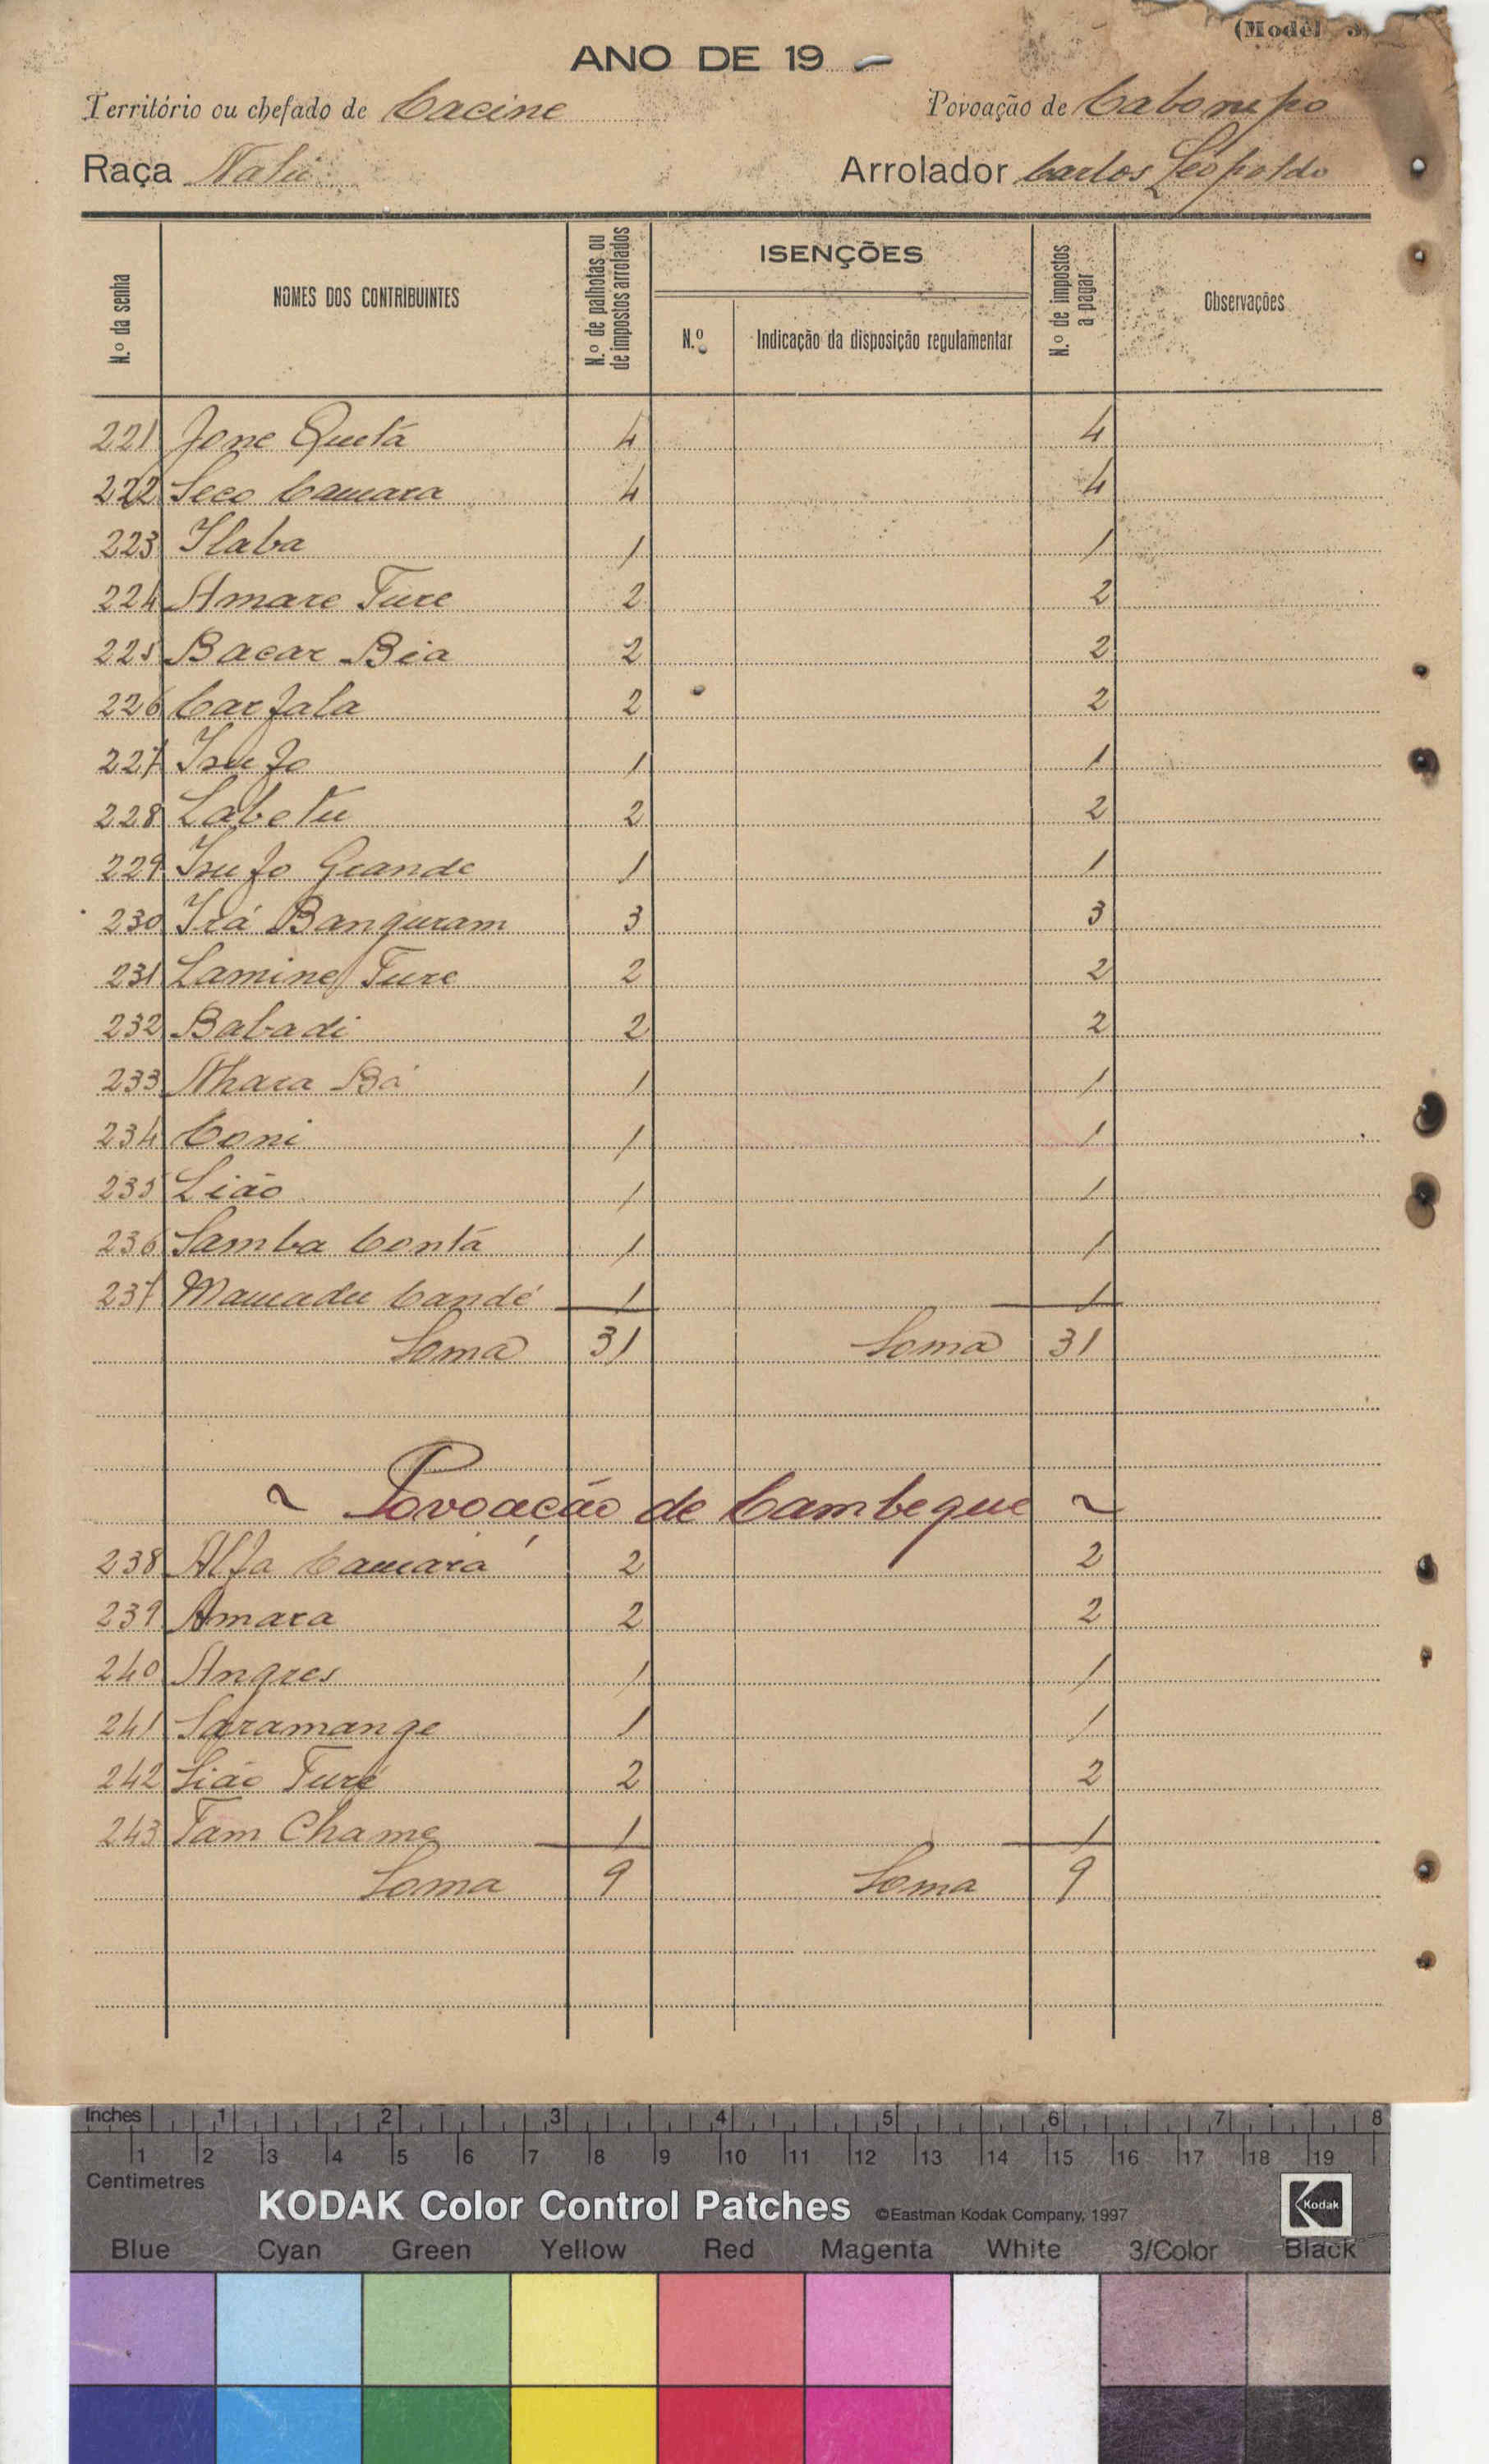 (Model 3)
ANO DE 19 -
Território ou chefado de Cacine Povoação de Cabonepo
Raça Nalú Arrolador Carlos Leopoldo
N.º da senha NOMES DOS CONTRIBUINTES N.º de palhotas ou de impostos arrolados ISENÇÕES N.º de impostos a pagar Observações
N.º Indicação da disposição regulamentar
221 Jone Quetá 4 4
222 Seco Camara 4 4
223 Ilaba 1 1
224 Amare Ture 2 2
225 Bacar Bia 2 2
226 Carfala 2 2
227 Isufo 1 1
228 Labetu 2 2
229 Isufo Grande 1 1
230 Irá Banguram 3 3
231 Lamine Ture 2 2
232 Babadi 2 2
233 Nhara Bá 1 1
234 Coni 1 1
235 Lião 1 1
236 Samba Contá 1 1
237 Mamadu Candé 1 1
Soma 31 Soma 31
~ Povoação de Cambeque ~
238 Alfa Camará 2 2
239 Amara 2 2
240 Angres 1 1
241 Saramange 1 1
242 Lião Turé 2 2
243 Tam Chame 1 1
Soma 9 Soma 9
Inches 1 2 3 4 5 6 7 8
1 2 3 4 5 6 7 8 9 10 11 12 13 14 15 16 17 18 19
Centimetres
KODAK Color Control Patches ©Eastman Kodak Company, 1997 Kodak
Blue Cyan Green Yellow Red Magenta White 3/Color Black